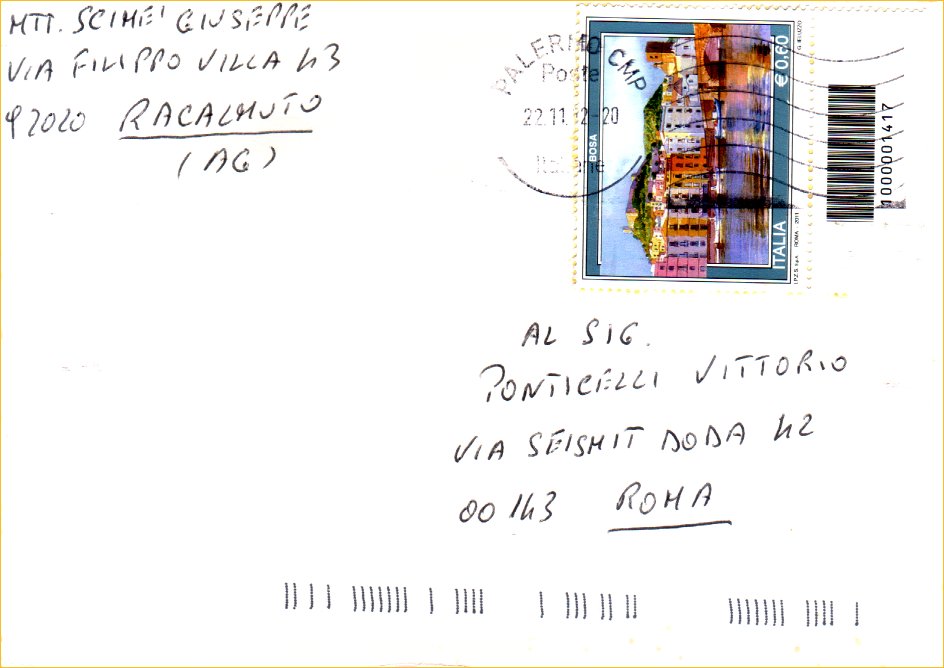 MTT. SCIME' GIUSEPPE
VIA FILIPPO VILLA 43
92020 RACALMUTO
(AG)
PALERMO CMP
Poste
22.11.12-20
Italiane
BOSA
€ 0,60
ITALIA
I.P.Z.S. S.p.A. - ROMA - 2011
1000001417
AL SIG.
PONTICELLI VITTORIO
VIA SEISMIT DODA 42
00143 ROMA